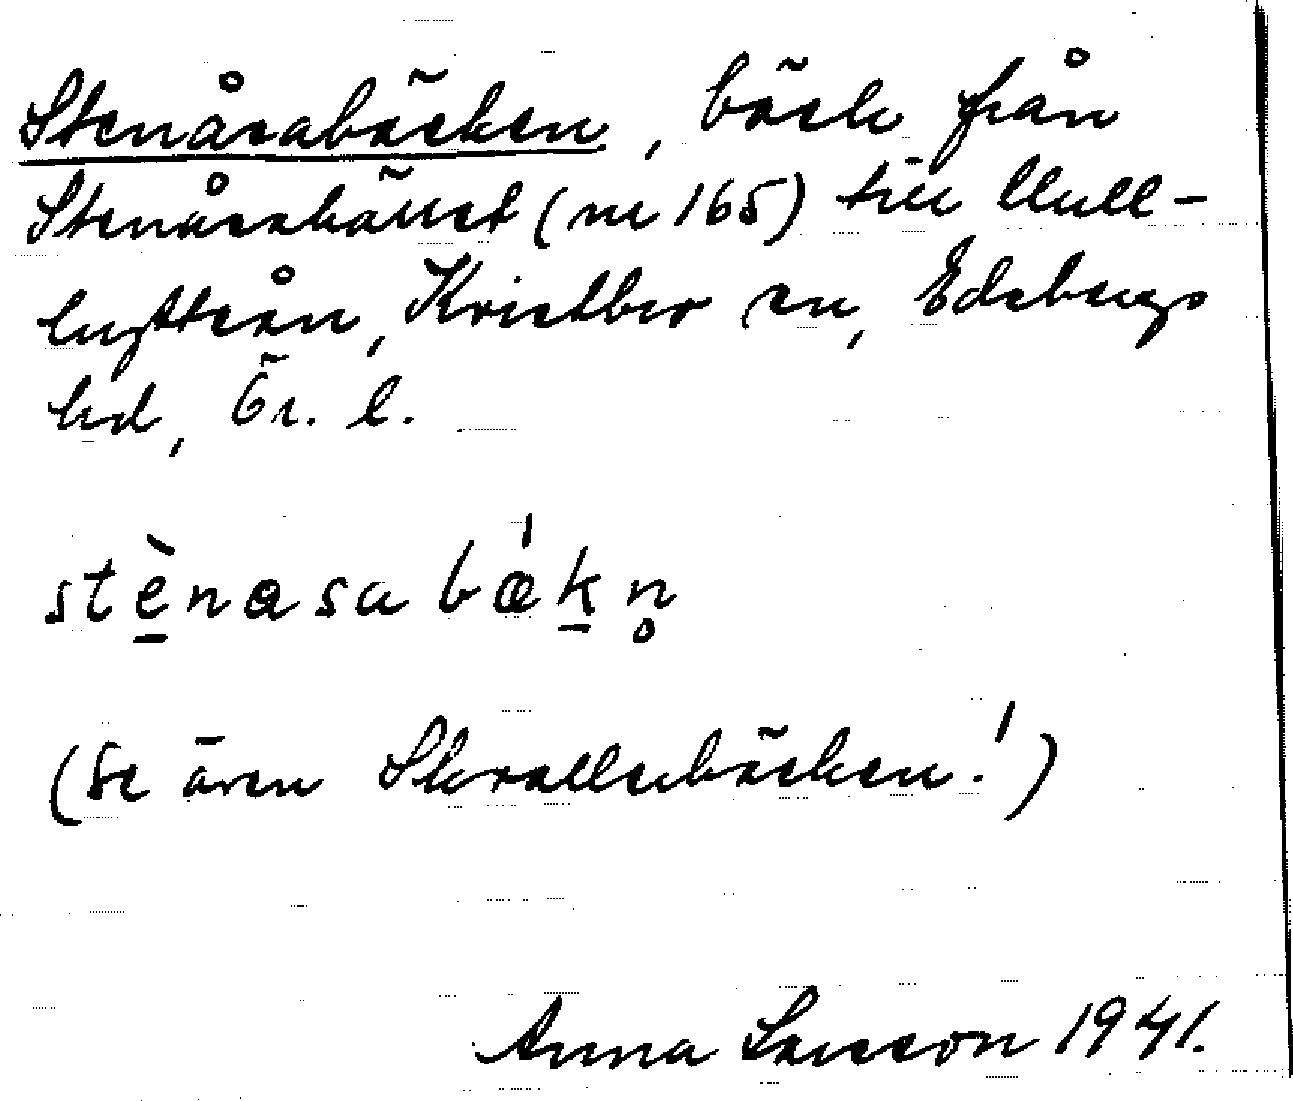 Stenåsabäcken, bäck från
Stenåsakärret (nr 165) till Ull-
, Kristberg sn, Bobergs
hd, Ög. l.
stènasabǽkn̥
(Se även Skrallebäcken!)
Anna Larsson 1941.